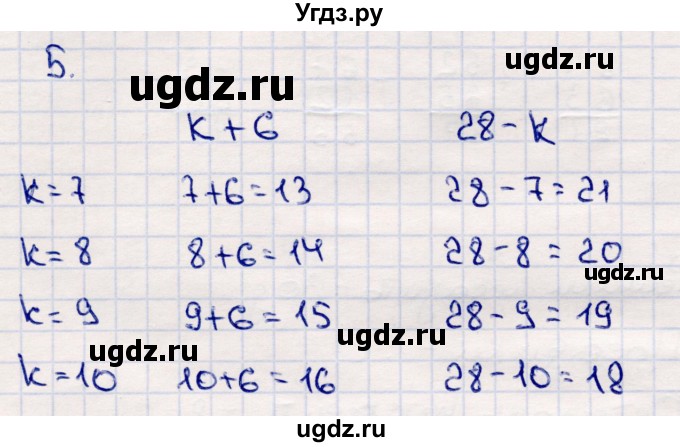 Угдз.ру
5.
ugdz.ru
k + 6 28 - k
k = 7 7 + 6 = 13 28 - 7 = 21
k = 8 8 + 6 = 14 28 - 8 = 20
ugdz.ru
k = 9 9 + 6 = 15 28 - 9 = 19
ugdz.ru
k = 10 10 + 6 = 16 28 - 10 = 18
ugdz.ru